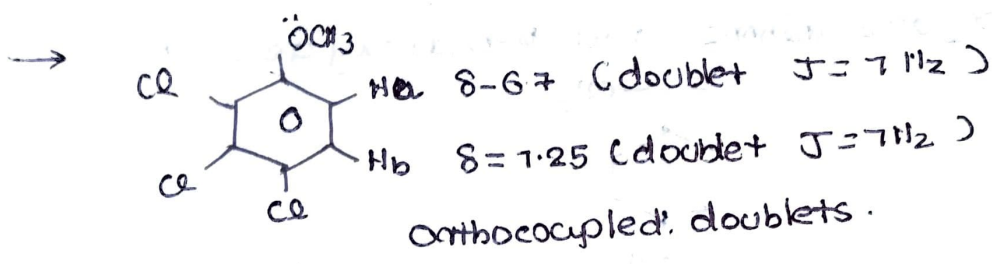 → ÖCH3
Cl Ha δ-6.7 (doublet J = 7 Hz)
Cl Hb δ = 7.25 (doublet J = 7Hz)
Cl
Orthocoupled: doublets.